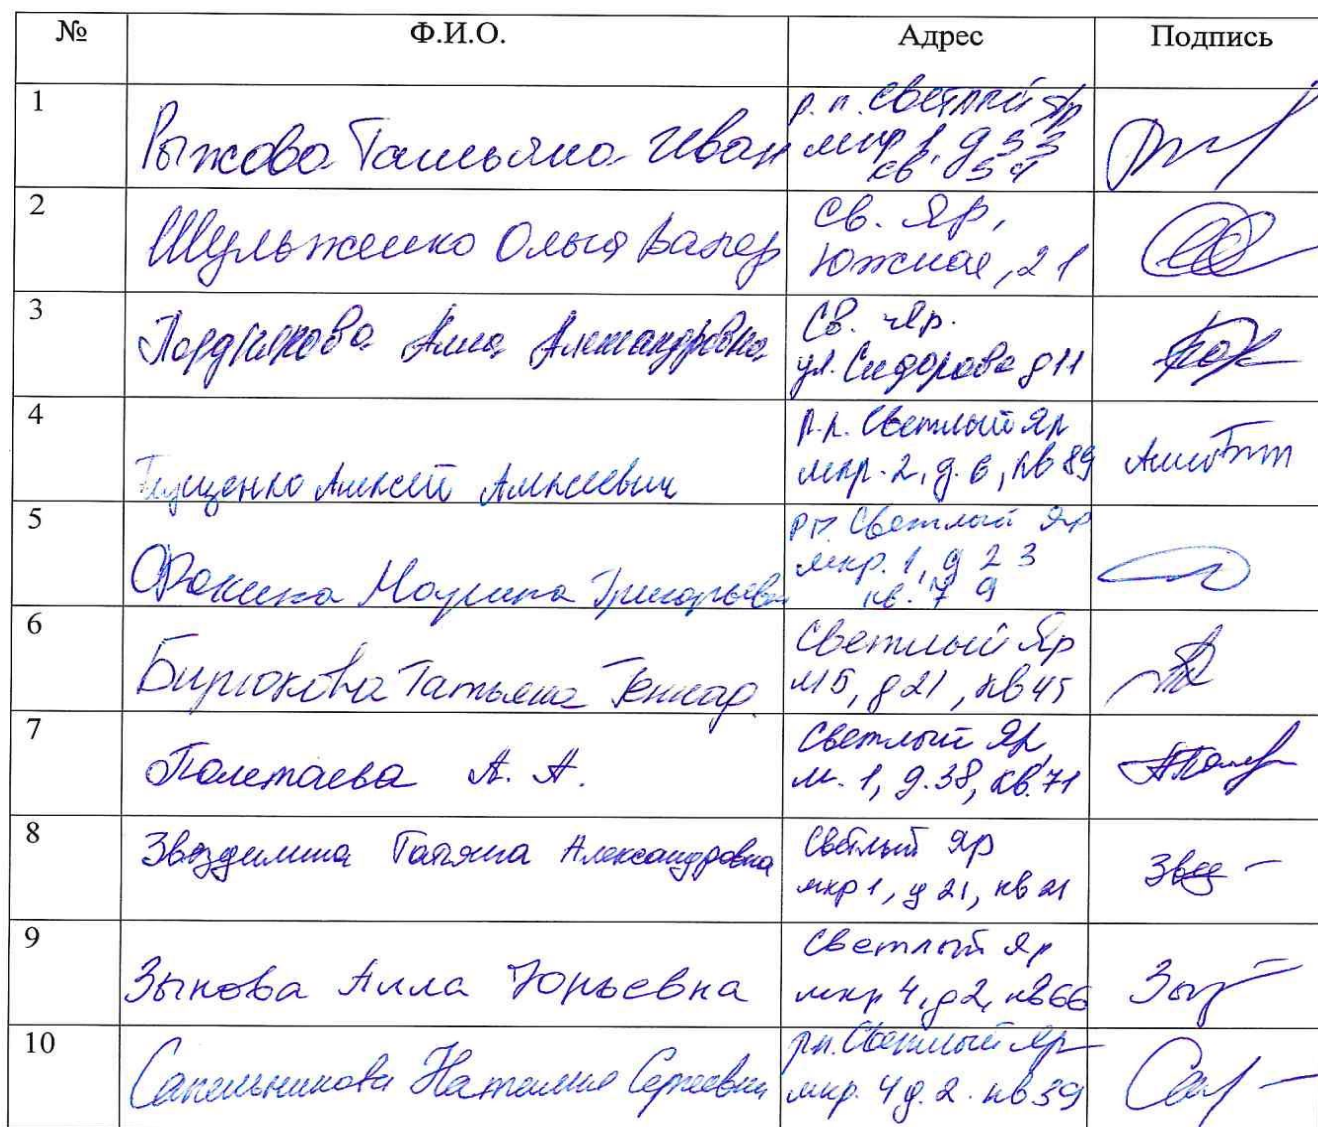 № Ф.И.О. Адрес Подпись
1 Рыжова Татьяна Иван р.п. Светлый Яр
мкр 1, д 33
кв 54
2 Шульженко Ольга Валер Св. Яр,
Южная, 21
3 Алла Александровна Св. Яр.
ул. Сидорова д 11
4 Алексей Алексеевич р.п. Светлый Яр
мкр. 2, д. 6, кв 89
5 Фокина Марина Григорьевн рп. Светлый Яр
мкр. 1, д 23
кв. 79
6 Бирюкова Татьяна Геннад. Светлый Яр
м 5, д 21, кв 45
7 Полетаева А. А. Светлый Яр,
м. 1, д. 38, кв. 71
8 Звездилина Татьяна Александровна Светлый Яр
мкр 1, д 21, кв 21
9 Зыкова Алла Юрьевна Светлый Яр
мкр 4, д 2, кв 66
10 Сапельникова Наталия Сергеевна рп. Светлый Яр
мкр. 4 д. 2. кв 39